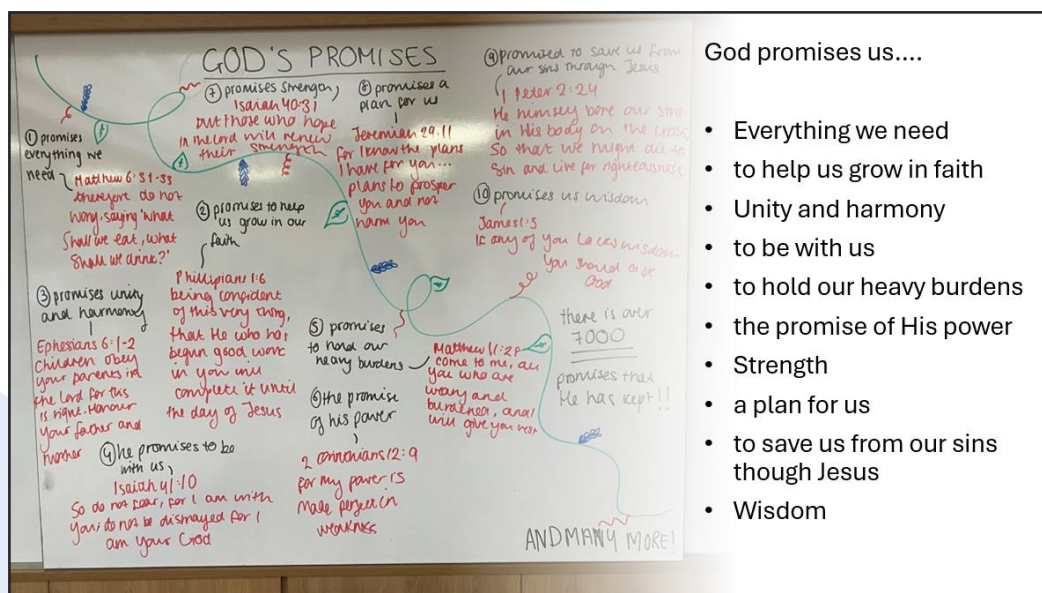 GOD'S PROMISES
① promises
everything we
need
Matthew 6:31-33
therefore do not
worry, saying 'what
shall we eat, what
shall we drink?'
② promises to help
us grow in our
faith
Phillipians 1:6
being confident
of this very thing,
that He who has
begun good work
in you will
complete it until
the day of Jesus
③ promises unity
and harmony
Ephesians 6:1-2
Children obey
your parents in
the lord for this
is right. Honour
your father and
mother
④ he promises to be
with us,
Isaiah 41:10
So do not fear, for I am with
you; do not be dismayed for I
am your God
⑤ promises
to hold our
heavy burdens
Matthew 11:28
come to me, all
you who are
weary and
burdened, and I
will give you rest
⑥ the promise
of his power
2 Corinthians 12:9
for my power is
made perfect in
weakness
⑦ promises strength,
Isaiah 40:31
but those who hope
in the lord will renew
their strength
⑧ promises a
plan for us
Jeremiah 29:11
for I know the plans
I have for you...
plans to prosper
you and not
harm you
⑨ promised to save us from
our sins through Jesus
1 Peter 2:24
He himself bore our sins
in His body on the cross
So that we might die to
sin and live for righteousness
⑩ promises us wisdom
James 1:5
If any of you lacks wisdom
you should ask
God
there is over
7000
promises that
He has kept!!
AND MANY MORE!
God promises us....
• Everything we need
• to help us grow in faith
• Unity and harmony
• to be with us
• to hold our heavy burdens
• the promise of His power
• Strength
• a plan for us
• to save us from our sins
though Jesus
• Wisdom